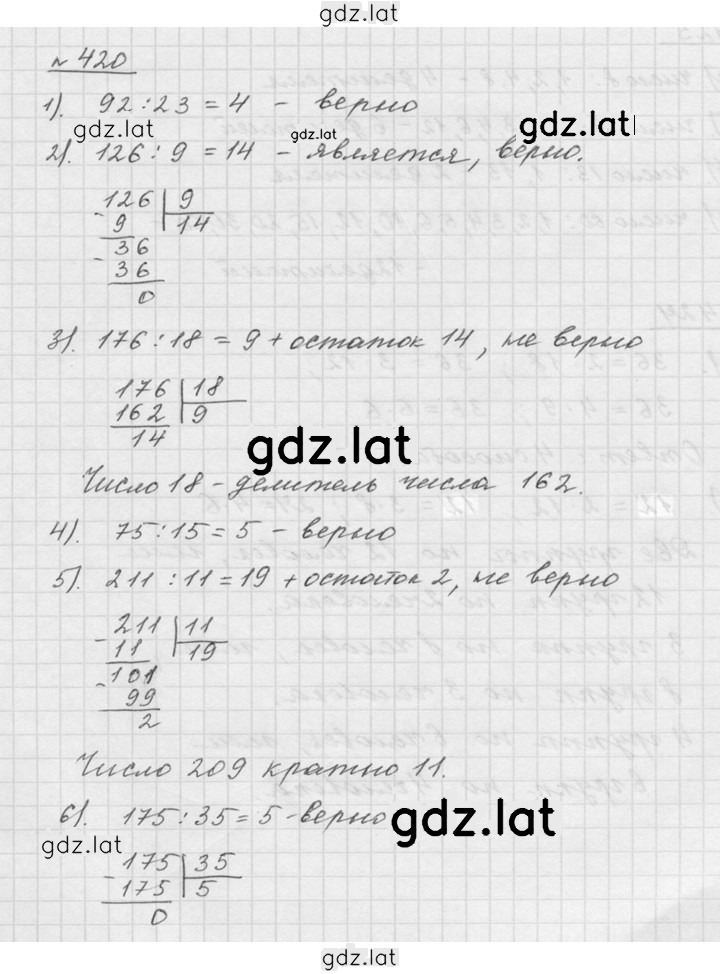 gdz.lat
№ 420
1). 92 : 23 = 4 - верно
gdz.lat
gdz.lat
gdz.lat
2). 126 : 9 = 14 - является, верно.
- 126 | 9
9 | 14
- 36
36
0
3). 176 : 18 = 9 + остаток 14, не верно
176 | 18
162 | 9
14
gdz.lat
Число 18 - делитель числа 162.
4). 75 : 15 = 5 - верно
5). 211 : 11 = 19 + остаток 2, не верно
- 211 | 11
11 | 19
- 101
99
2
Число 209 кратно 11.
6). 175 : 35 = 5 - верно
gdz.lat
gdz.lat
- 175 | 35
175 | 5
0
gdz.lat